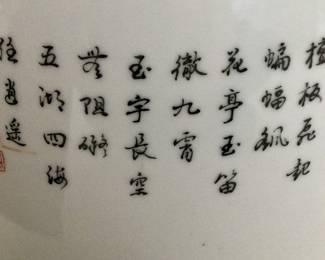 檀板起
蝙蝠飄
花亭玉笛
徹九霄
玉宇長空
無阻礙
五湖四海
任逍遙